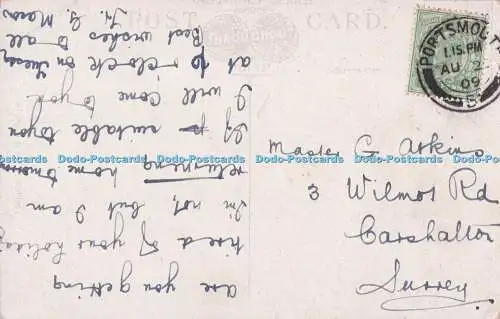 POST CARD.
THROUGHOUT
PORTSMOUT
1.15.PM
AU 2
09
Master G. Atkins
3 Wilmot Rd
Carshalton
Surrey
are you getting
tired of your holiday
I'm not, but I am
returning home tomorrow
If suitable to you
I will come to you
at 10 o'clock on Tuesday
Best wishes to all
Dodo-Postcards Dodo-Postcards Dodo-Postcards Dodo-Postcards Dodo-Postcards